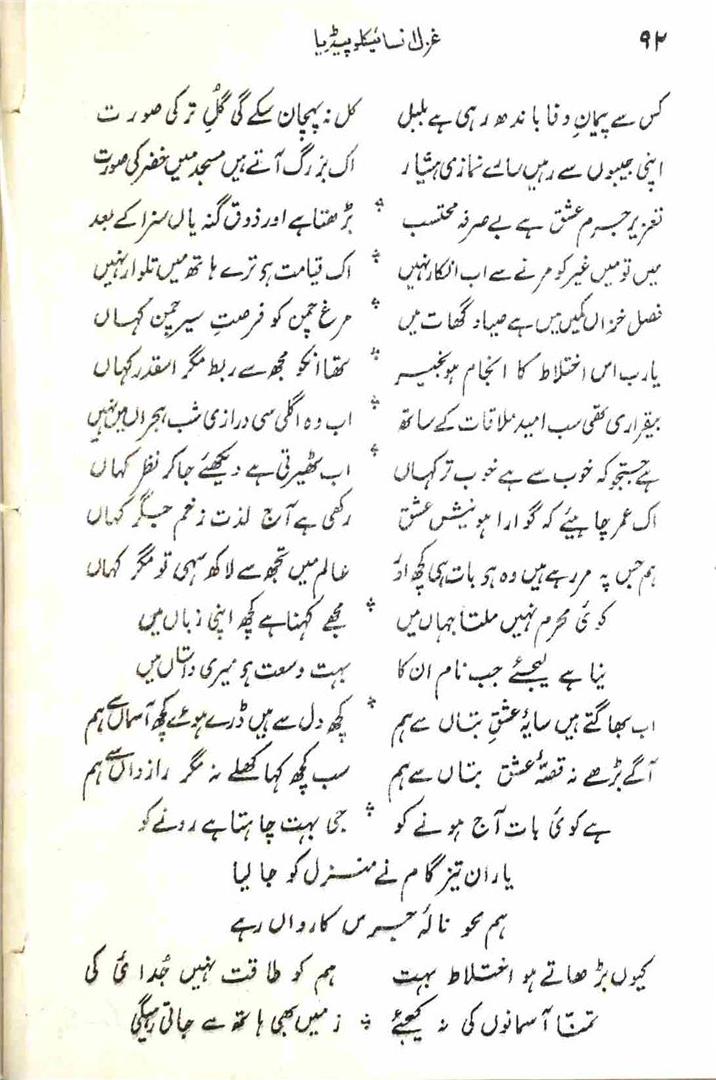 ۹۲ غزل انسائیکلوپیڈیا
کس سے پیمانِ وفا باندھ رہی ہے بلبل کل نہ پہچان سکے گی گلِ تر کی صورت
اپنی جیبوں سے رہیں سارے نمازی ہشیار اک بزرگ آتے ہیں مسجد میں خضر کی صورت
تعزیر جرم عشق ہے بے صرفہ محتسب بڑھتا ہے اور ذوق گنہ یاں سزا کے بعد
میں تو میں غیر کو مرنے سے اب انکار نہیں اک قیامت ہو ترے ہاتھ میں تلوار نہیں
فصل خزاں کمیں میں ہے صیاد گھات میں مرغ چمن کو فرصتِ سیر چمن کہاں
یارب اس اختلاط کا انجام ہو بخیر تھا انکو مجھ سے ربط مگر اسقدر کہاں
بیقراری تھی سب امید ملاقات کے ساتھ اب وہ اگلی سی درازی شب ہجراں میں نہیں
ہے جستجو کہ خوب سے ہے خوب تر کہاں اب ٹھیرتی ہے دیکھئے جا کر نظر کہاں
اک عمر چاہیئے کہ گوارا ہو نیش عشق رکھی ہے آج لذت زخم جگر کہاں
ہم جس پہ مر رہے ہیں وہ ہو بات ہی کچھ اور عالم میں تجھ سے لاکھ سہی تو مگر کہاں
کوئی محرم نہیں ملتا جہاں میں مجھے کہنا ہے کچھ اپنی زباں میں
نیا ہے لیجئے جب نام ان کا بہت وسعت ہو میری داستاں میں
اب بھاگتے ہیں سایۂ عشقِ بتاں سے ہم کچھ دل سے ہیں ڈرے ہوئے کچھ آسماں سے ہم
آگے بڑھے نہ قصۂ عشق بتاں سے ہم سب کچھ کہا کھلے نہ مگر رازداں سے ہم
ہے کوئی بات آج ہونے کو جی بہت چاہتا ہے رونے کو
یاران تیز گام نے منزل کو جا لیا
ہم محو نالۂ جرس کارواں رہے
کیوں بڑھاتے ہو اختلاط بہت ہم کو طاقت نہیں جُدائی کی
تمنّا آسمانوں کی نہ کیجئے زمیں بھی ہاتھ سے جاتی رہیگی